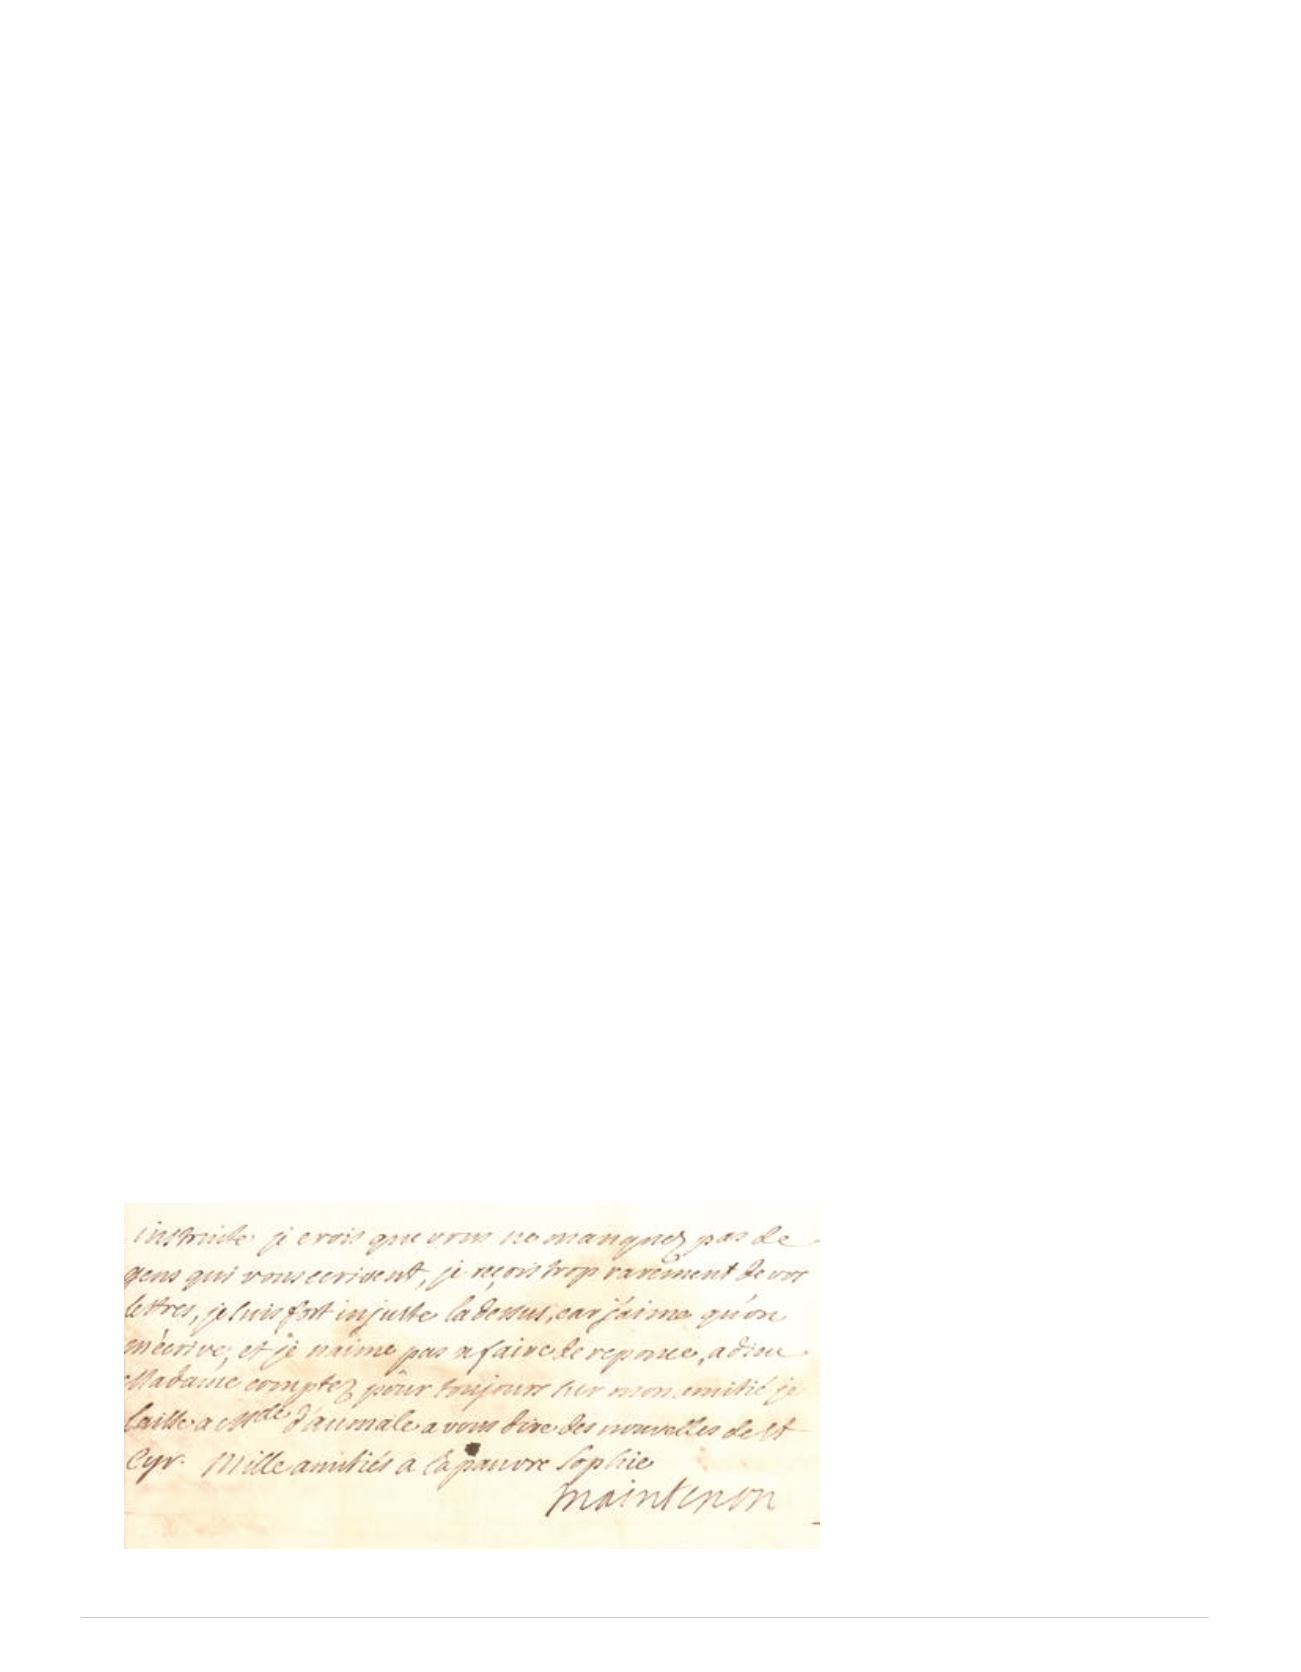 instruite je crois que vous ne manquez pas de
gens qui vous ecrivent, je reçois trop rarement de vos
lettres, je suis fort injuste la dessus, car j'aime qu'on
m'écrive, et je n'aime pas a faire de reponce, adieu
Madame comptez pour toujours sur mon amitié je
laisse a Mlle d'aumale a vous dire des nouvelles de st
Cyr. Mille amitiés a la pauvre Sophie
maintenon